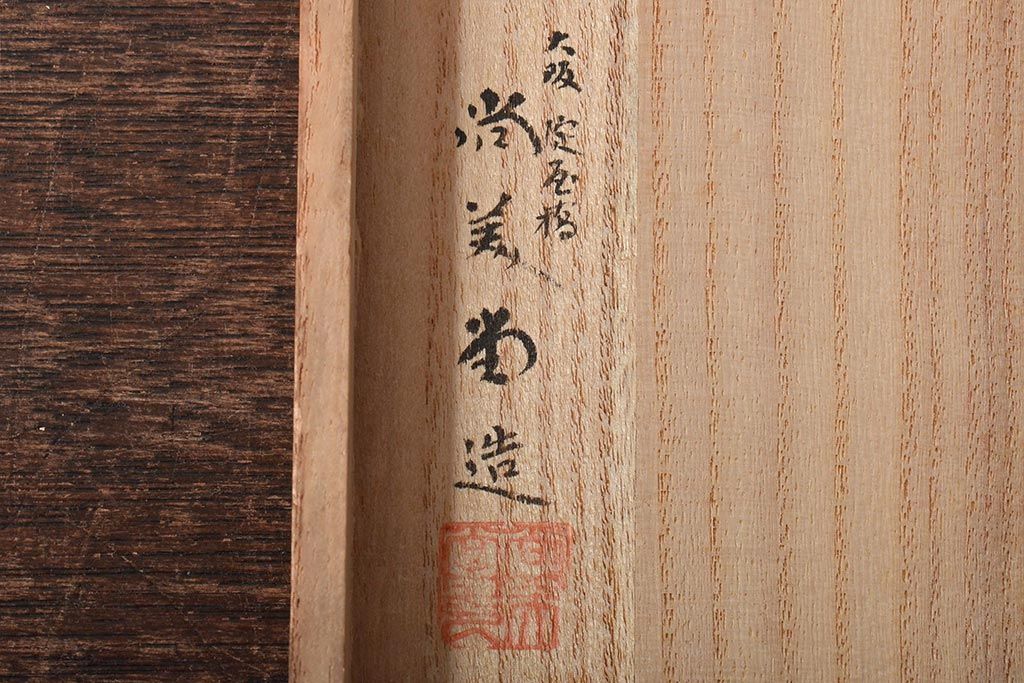 大阪 淀屋橋
尚美堂造